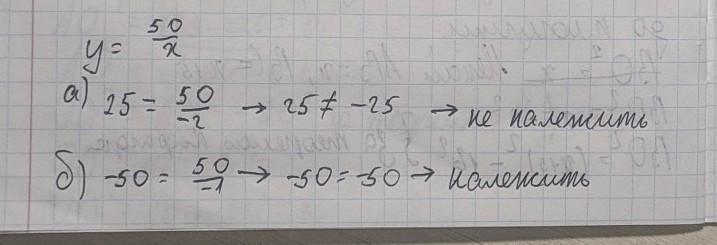 y = 50/x
а) 25 = 50/-2 → 25 ≠ -25 → не належить
б) -50 = 50/-1 → -50 = -50 → належить